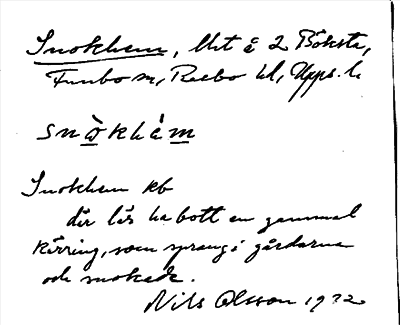 Snokhem, lht å 2 Böksta,
Funbo sn, Rasbo hd, Upps. l.
snὸkhèm
Snokhem kb
där lär ha bott en gammal
kärring, som sprang i gårdarna
och snokade.
Nils Olsson 1932